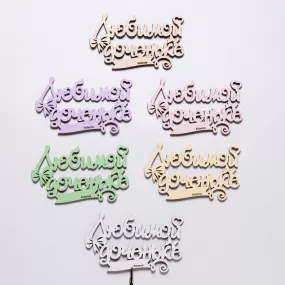 Любимой
доченьке
Любимой
доченьке
Любимой
доченьке
Любимой
доченьке
Любимой
доченьке
Любимой
доченьке